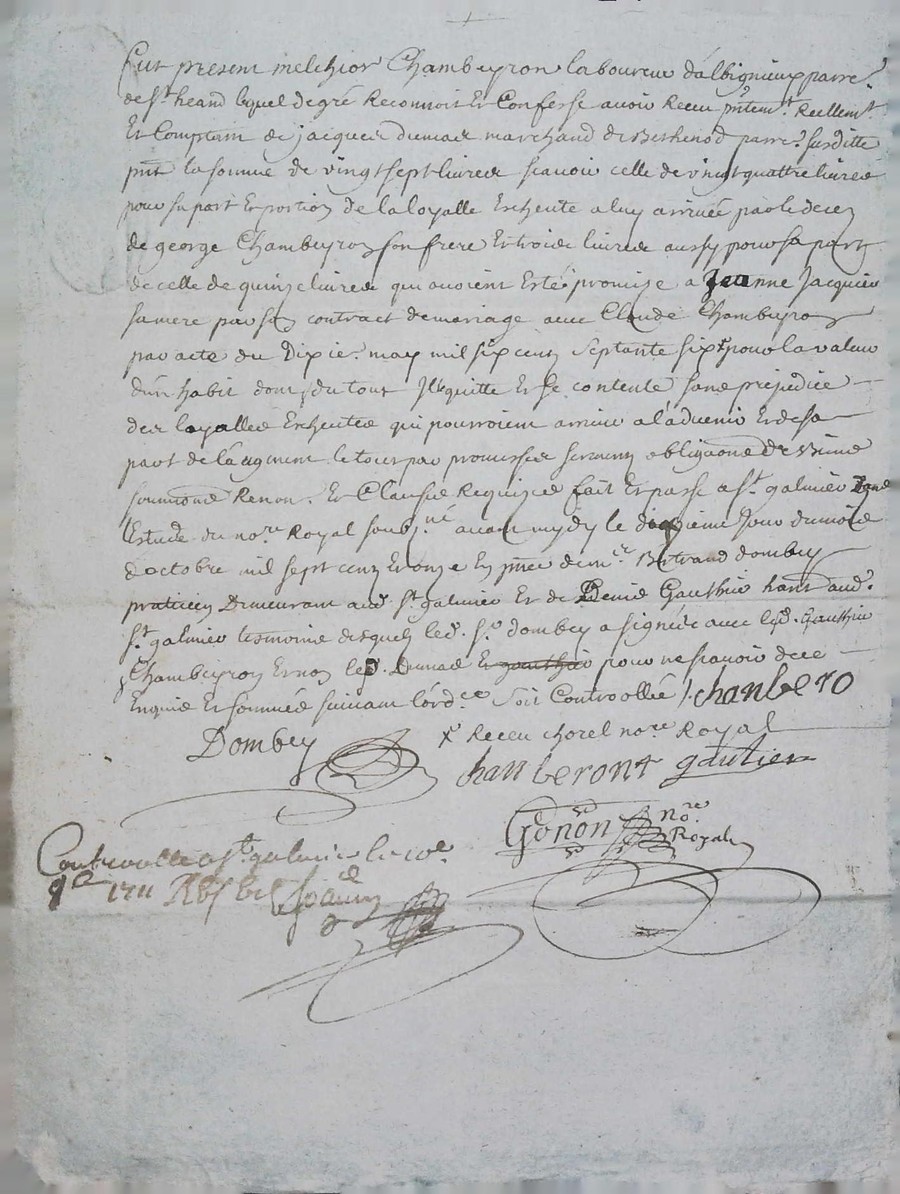 fut present melchior Chambeyron laboureur d'albignieux parre.
de St. heand lequel de gré Reconnoit Et Confesse avoir Receu pntemt. Reellemt.
Et Comptant de jacques dumas marchand de parre. susditte
pnt la somme de vingt sept livres scavoir celle de vingt quattre livres
pour sa part Et portion de la loyalle Escheute a luy arrivée par le decez
de george Chambeyron son frere Et trois livres aussy pour sa part
de celle de quinze livres qui avoient Esté promise a Jeanne Jacquier
sa mere par son contract de mariage avec Claude Chambeyron
par acte du Dixie. may mil six cens septante six pour la valeur
d'un habit dont du tout Il quitte Et se contente sans prejudice
des loyalles Escheutes qui pourroient arriver a l'advenir Et de sa
part de l'augment le tout par promesses serment obligaons
soumions Renon. Et Clauses Requizes fait Et passé a St. galmier Dans
l'estude du nore. Royal soubz.né avant mydy le dixieme Jour du mois
d'octobre mil sept cens Et onze En pnce de mr. Bertrand dombey
praticien Demeurant aud. St. galmier Et de Denis Gauthier hant. aud.
St. galmier tesmoins desquels led. Sr. dombey a signé avec led. Gauthier
Chambeyron Et non led. Dumas Et gauthier pour ne scavoir de ce
Enquis Et sommés suivant l'ordce. Soit Controollé / chanbero
Dombey
x Receu chorel nore Royal
chanberont gautier
Gonon nore.
Royal
Controollé a St. galmier le 10e.
1711